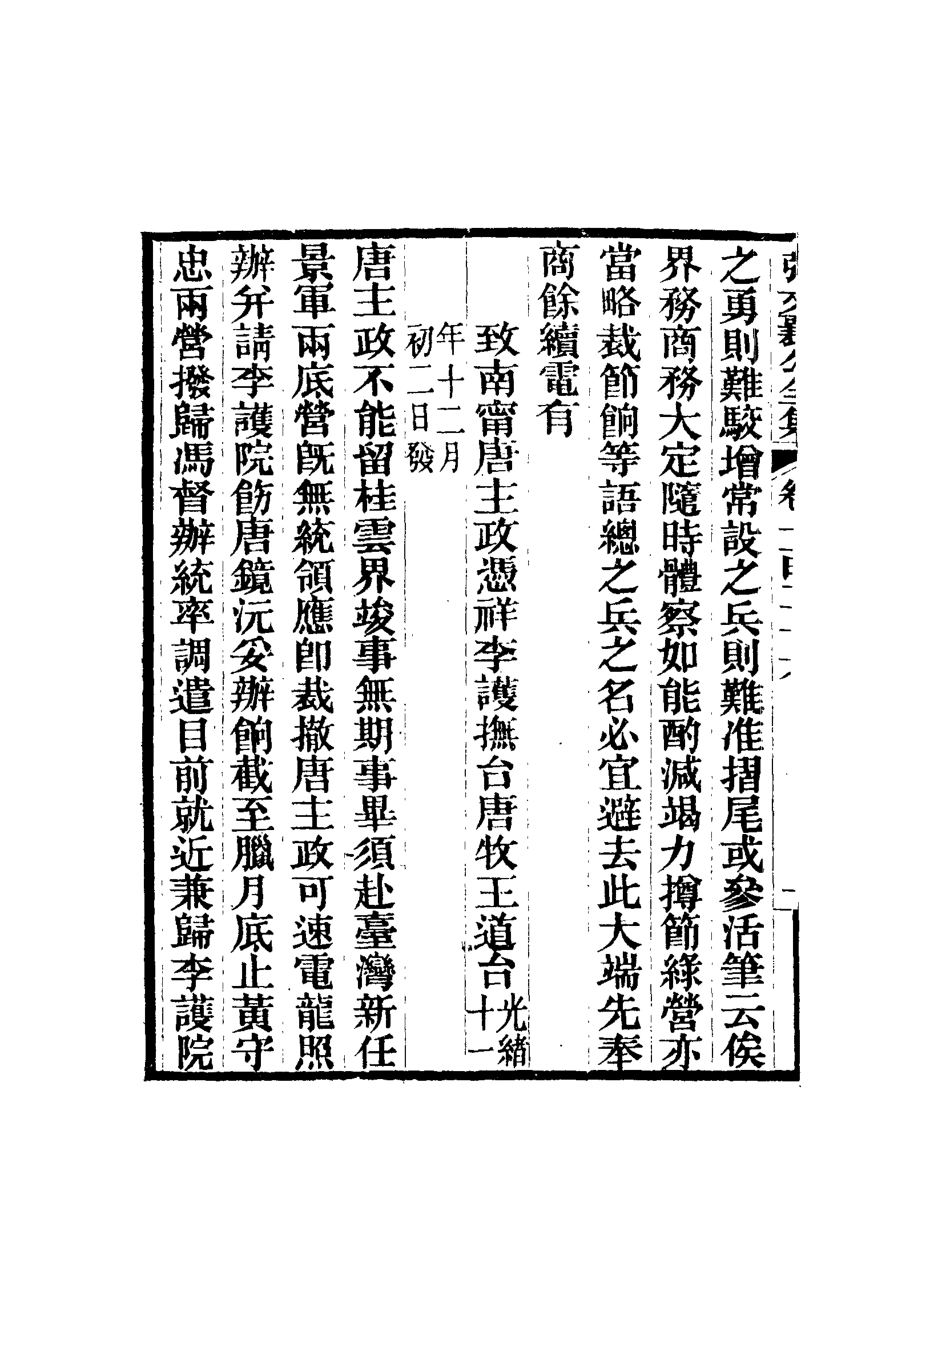 之勇則難駁增常設之兵則難准摺尾或參活筆云俟
界務商務大定隨時體察如能酌減竭力撙節綠營亦
當略裁節餉等語總之兵之名必宜避去此大端先奉
商餘續電有
致南甯唐主政憑祥李護撫台唐牧王道台光緒十一
年十二月初二日發
唐主政不能留桂雲界竣事無期事畢須赴臺灣新任
景軍兩底營旣無統領應卽裁撤唐主政可速電龍照
辦幷請李護院飭唐鏡沅妥辦餉截至臘月底止黃守
忠兩營撥歸馮督辦統率調遣目前就近兼歸李護院